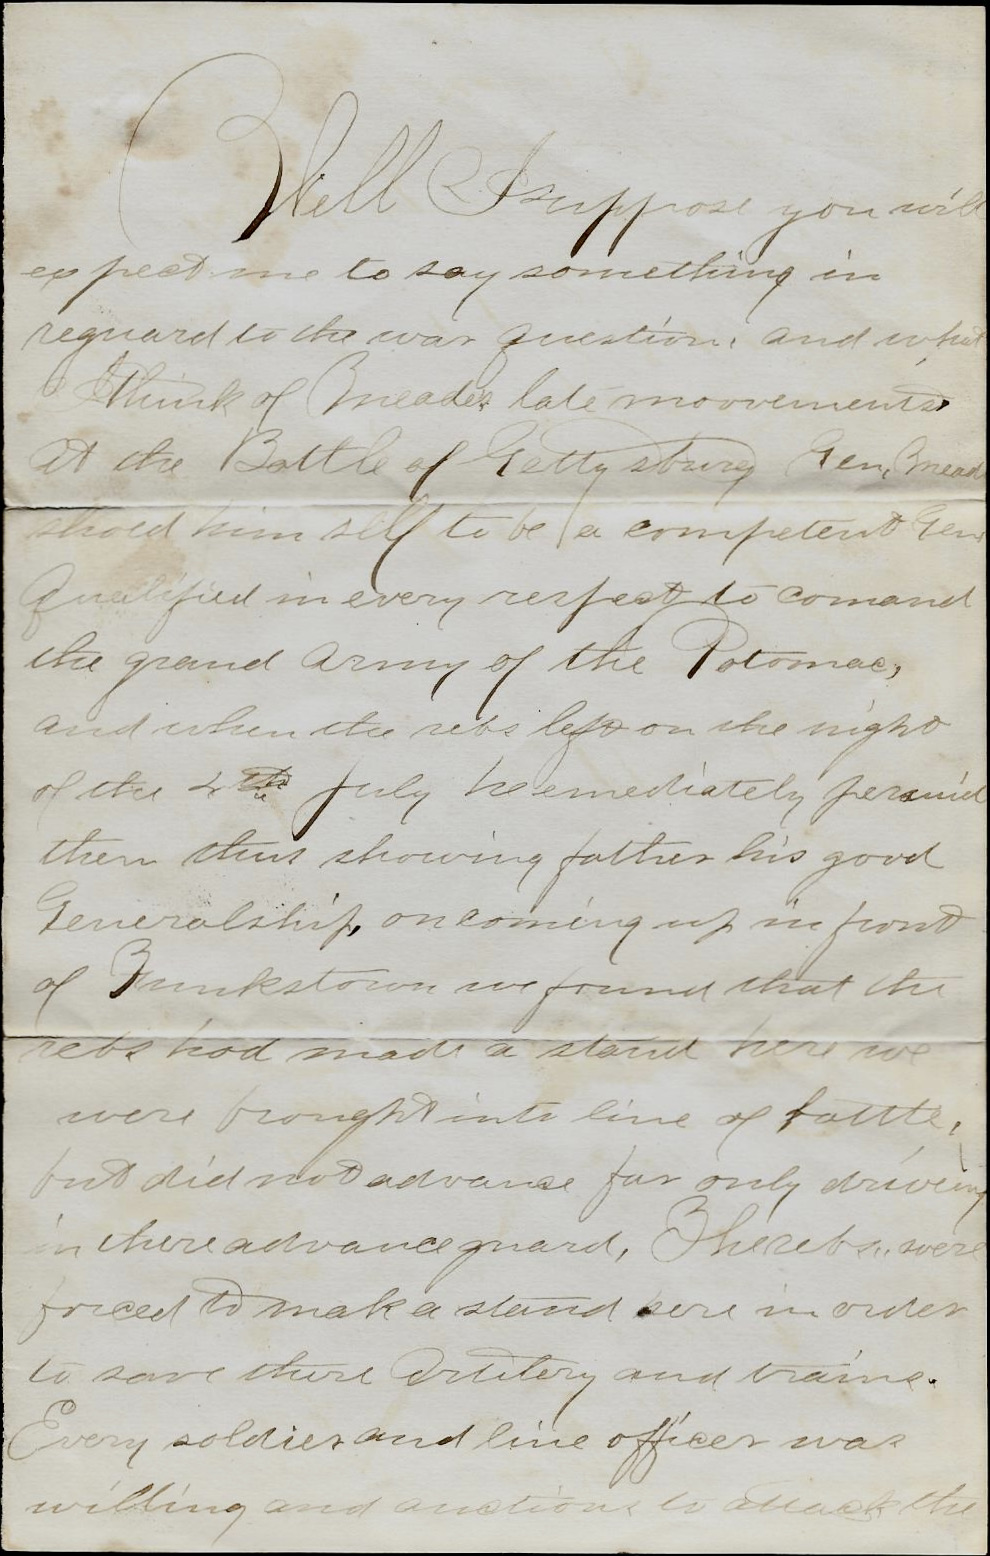 Well I suppose you will
expect me to say something in
reguard to the war question, and what
I think of Meades late moovements
at the Battle of Gettysburg Gen, Mead
shoed himself to be a competent Gen
Qualified in every respect to comand
the grand Army of the Potomac,
and when the rebs left on the night
of the 4th July he emediately persuid
them thus showing father his good
Generalship, on coming up in front
of Funkstown we found that the
rebs had made a stand here we
were brought into line of battle,
but did not advance far only driveing
in there advance guard, The rebs, were
forced to make a stand here in order
to save there Artilery and trains.
Every soldier and line officer was
willing and anctious to attack the